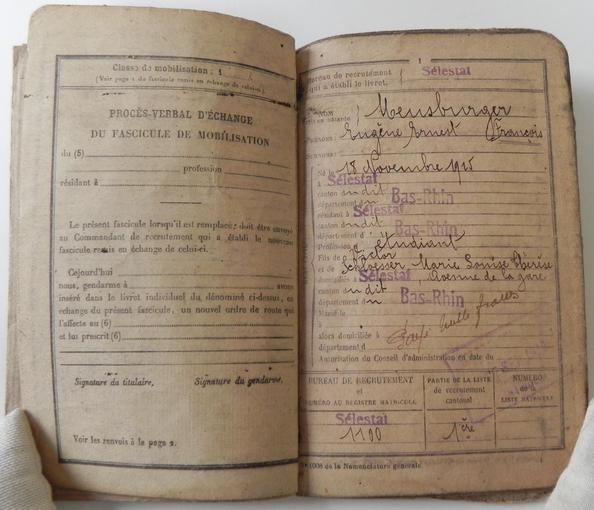 Classe de mobilisation : 1
(Voir page 2 du fascicule remis en échange de celui-ci.)
PROCÈS-VERBAL D'ÉCHANGE
DU FASCICULE DE MOBILISATION
du (5)
profession
résidant à
Le présent fascicule lorsqu'il est remplacé doit être envoyé
au Commandant de recrutement qui a établi le nouveau
fascicule remis en échange de celui-ci.
Cejourd'hui
nous, gendarme à avons
inséré dans le livret individuel du dénommé ci-dessus, en
échange du présent fascicule, un nouvel ordre de route qui
l'affecte au (6)
et lui prescrit (6)
Signature du titulaire. Signature du gendarme.
Voir les renvois à la page 2.
1
Bureau de recrutement
qui a établi le livret. Sélestat
NOM Meusburger
Prénoms : Eugène Ernest François
Surnoms :
Né le 18 Novembre 1915
Sélestat
canton dudit
département du Bas-Rhin
résidant à Sélestat
canton dudit
département du Bas-Rhin
Profession d étudiant
Fils de Victor
et de Schloesser Marie Louise Thérèse
domiciliés à Sélestat Avenue de la gare
canton dudit
département du Bas-Rhin
Marié le
alors domiciliée à
département d
Autorisation du Conseil d'administration en date du
BUREAU DE RECRUTEMENT
et
NUMÉRO AU REGISTRE MATRICULE
PARTIE DE LA LISTE
de recrutement
cantonal
NUMÉRO
de la
LISTE MATRICULE
Sélestat
1100
1ère
de la Nomenclature générale.